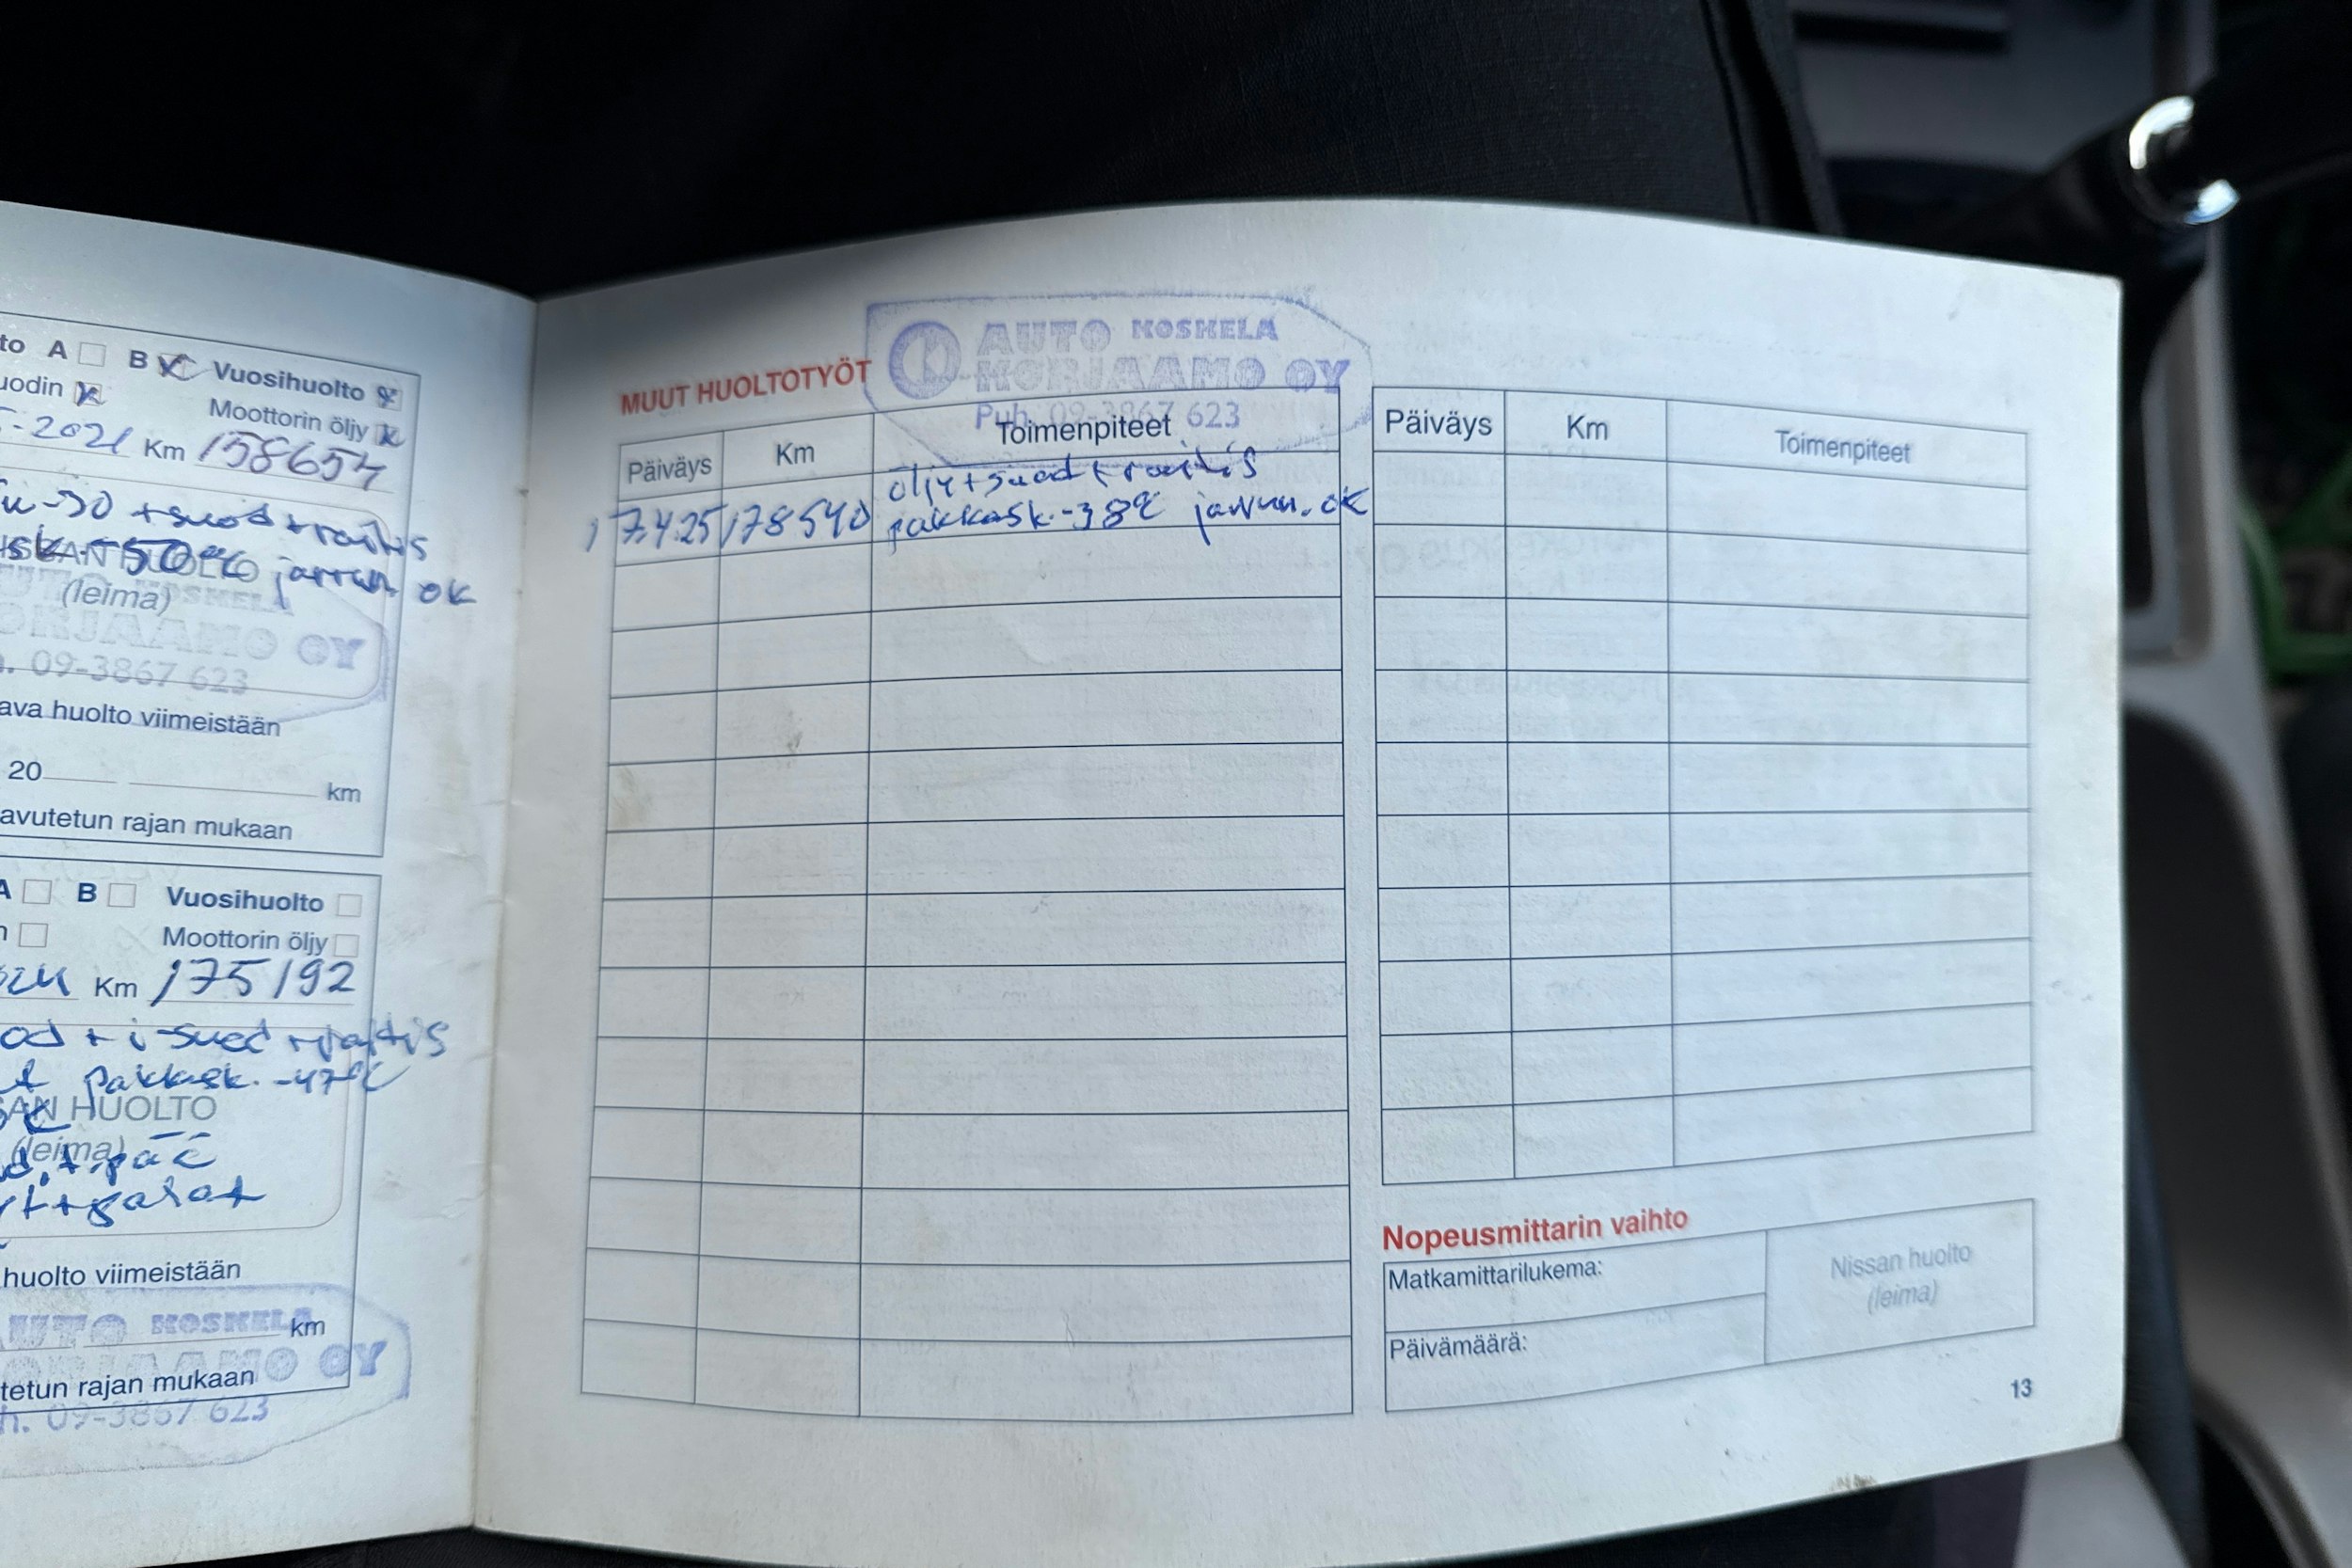 to A B Vuosihuolto
uodin Moottorin öljy
-2021 Km 158654
-30 +suod+raitis
sk -50°C jarrun. ok
(leima)
KOSKELA
ORJAAMO OY
09-3867 623
ava huolto viimeistään
20 km
avutetun rajan mukaan
A B Vuosihuolto
Moottorin öljy
Km 175192
od + i-suod +raitis
pakkask. -47°C
SAN HUOLTO
(leima)
huolto viimeistään
AUTO KOSKELA km
ORJAAMO OY
tetun rajan mukaan
h. 09-3867 623
MUUT HUOLTOTYÖT
AUTO KOSKELA
KORJAAMO OY
Puh. 09-3867 623
Päiväys Km Toimenpiteet
17.4.25 178540 öljy+suod+raitis
pakkask. -38°C jarrun. ok
Päiväys Km Toimenpiteet
Nopeusmittarin vaihto
Matkamittarilukema:
Päivämäärä:
Nissan huolto
(leima)
13